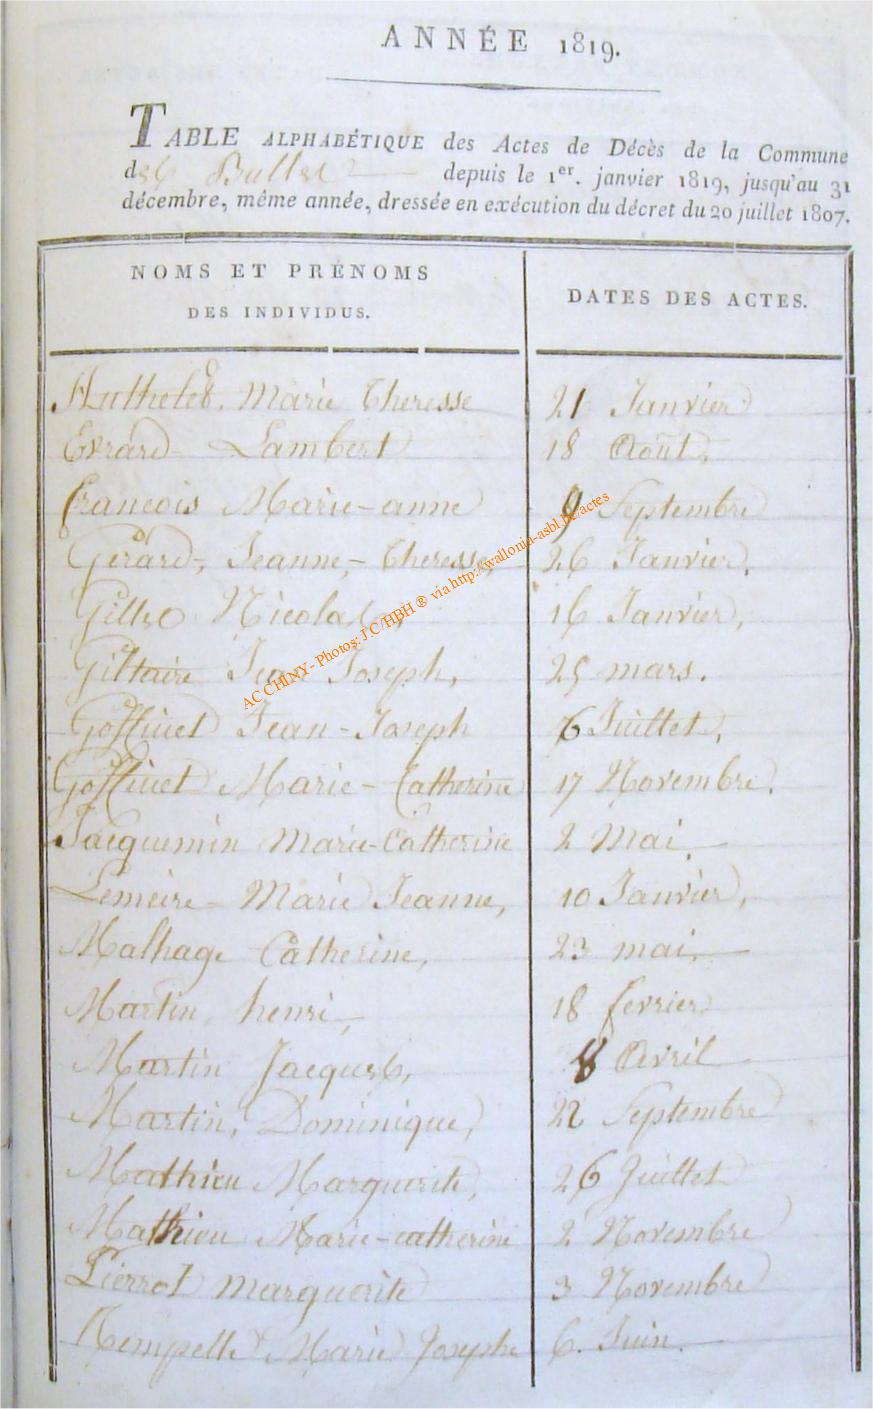 ANNÉE 1819.
TABLE ALPHABÉTIQUE des Actes de Décès de la Commune
depuis le 1er. janvier 1819, jusqu'au 31
décembre, même année, dressée en exécution du décret du 20 juillet 1807.
NOMS ET PRÉNOMS
DES INDIVIDUS.
DATES DES ACTES.
Marie Theresse 21 Janvier
Evrard Lambert 18 Aout,
francois Marie-anne 9 Septembre
Gérard, Jeanne-Theresse, 26 Janvier,
Gilles Nicolas, 16 Janvier,
Giltaire Jean Joseph, 25 mars.
Goffinet Jean-Joseph 6 Juillet,
Goffinet Marie-Catherine 17 Novembre.
Jacquemin Marie-Catherine 2 Mai,
Lemeire Marie Jeanne, 10 Janvier,
Malhage Catherine, 23 mai,
Martin, henri, 18 fevrier
Martin Jacques, 8 Avril
Martin, Dominique, 22 Septembre
Mathieu Marguerite, 26 Juillet
Mathieu Marie-catherine 2 Novembre
Pierrot Marguerite 3 Novembre
Marie Josephe 6. Juin.
AC CHINY - Photos: J C/HBH ® via http://wallonia-asbl.be/actes